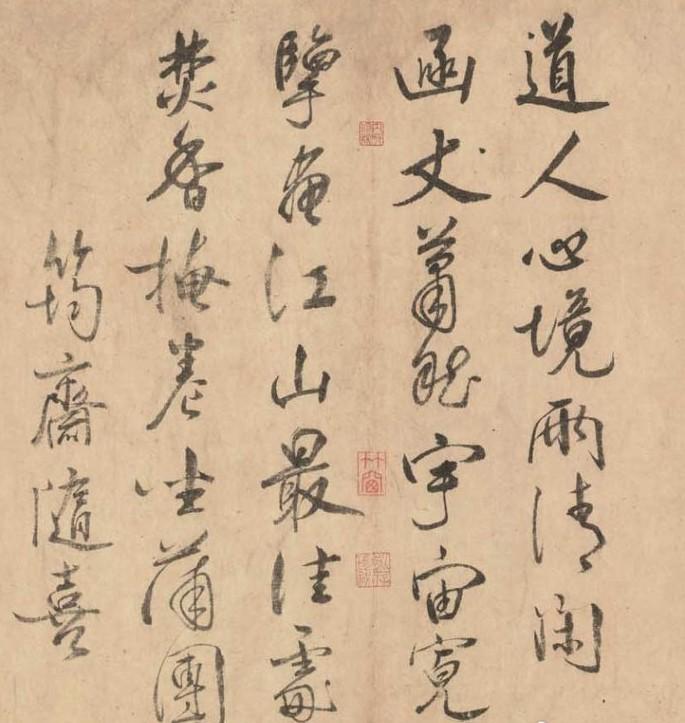 道人心境兩清閑
函丈蕭然宇宙寬
擘畫江山最佳處
焚香掩卷坐蒲團
筠齋隨喜